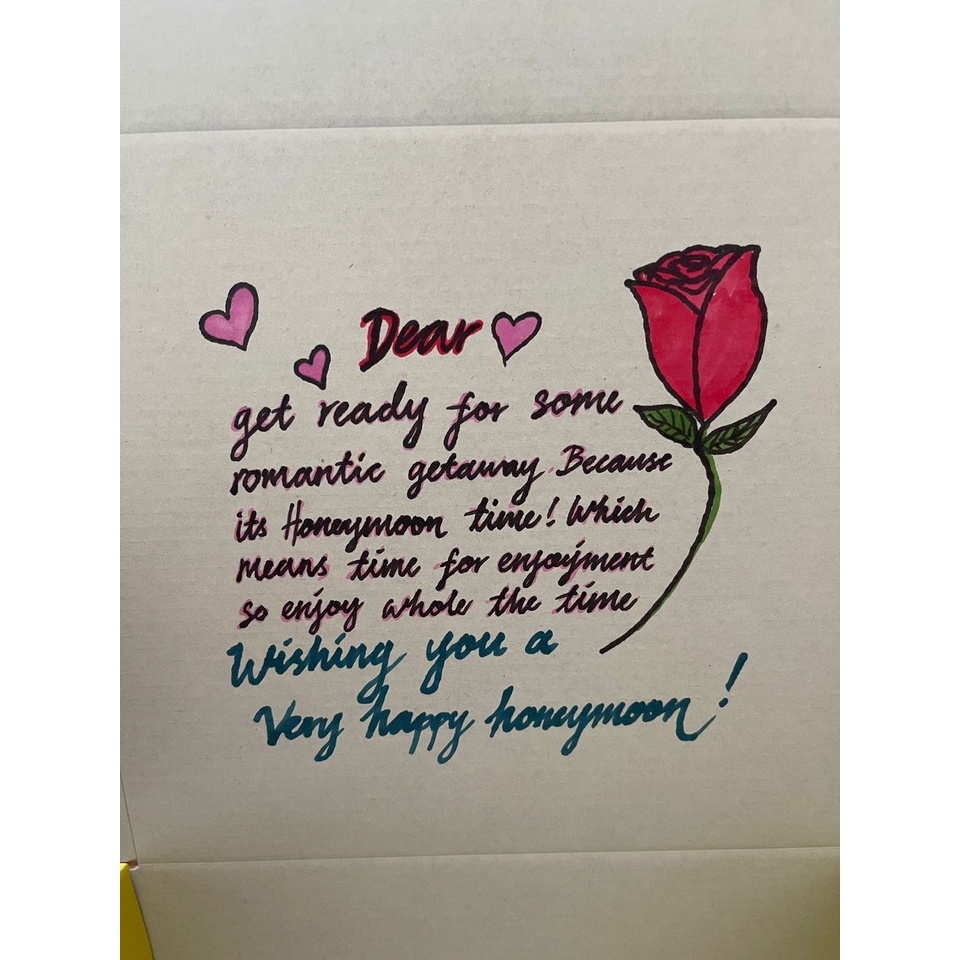 Dear
get ready for some
romantic getaway. Because
its Honeymoon time! Which
means time for enjoyment
so enjoy whole the time
Wishing you a
Very happy honeymoon!